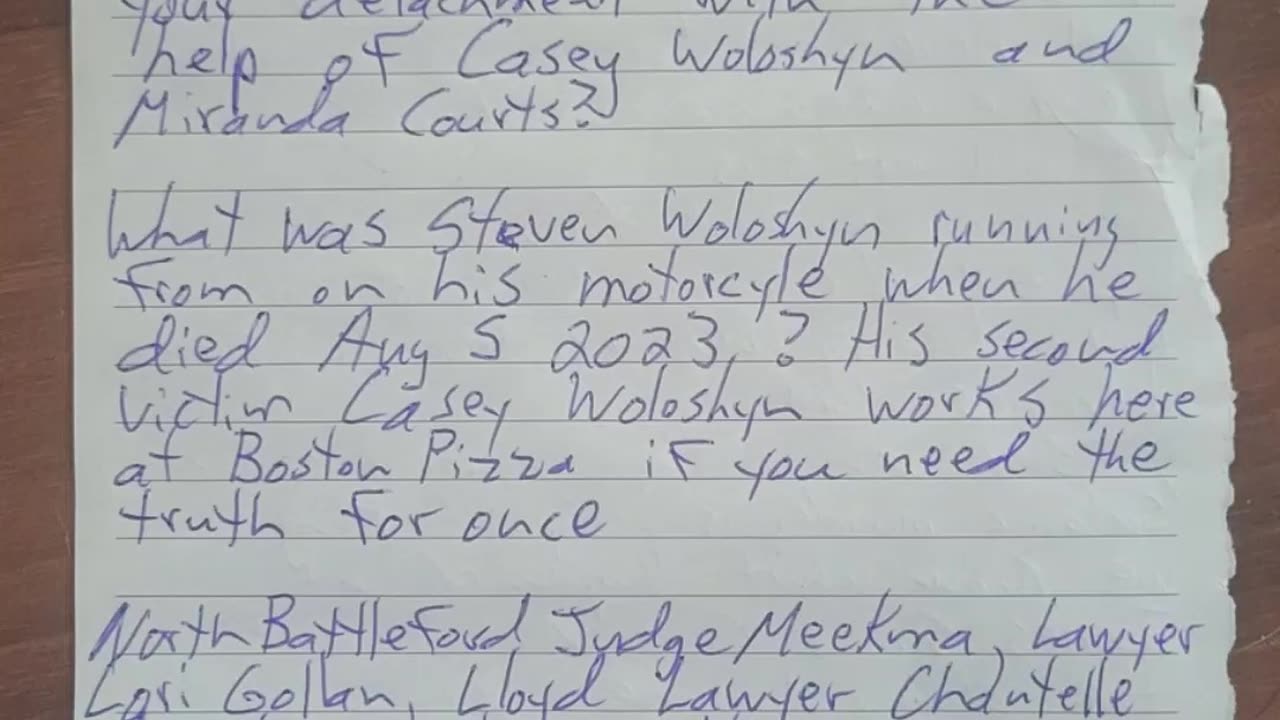 your detachment with the
help of Casey Woloshyn and
Miranda Courts?
What was Steven Woloshyn running
from on his motorcyle when he
died Aug 5 2023,? His second
victim Casey Woloshyn works here
at Boston Pizza if you need the
truth for once
North Battleford Judge Meekma, Lawyer
Lori Gollan, Lloyd Lawyer Chantelle